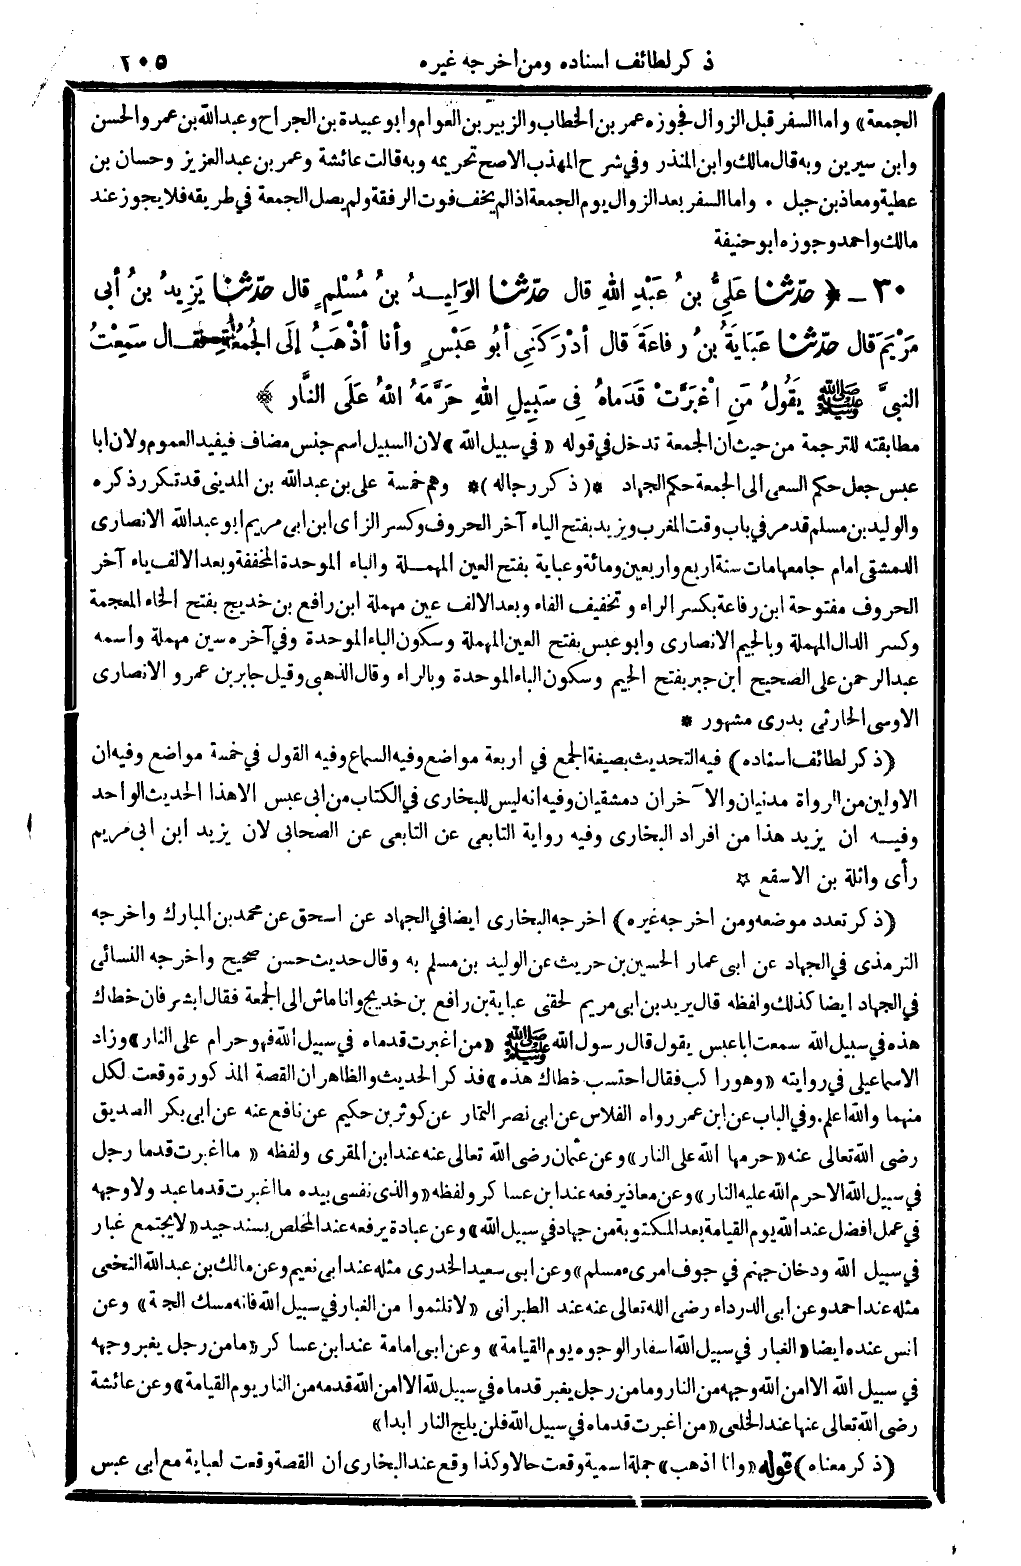 ذكر لطائف اسناده ومن اخرجه غيره ٢٠٥
الجمعة» وأما السفر قبل الزوال فجوزه عمر بن الخطاب والزبير بن العوام وابو عبيدة بن الجراح وعبدالله بن عمر والحسن
وابن سيرين وبه قال مالك وابن المنذر وفي شرح المهذب الاصح تحريمه وبه قالت عائشة وعمر بن عبد العزيز وحسان بن
عطية ومعاذ بن جبل ٠ واما السفر بعد الزوال يوم الجمعة اذا لم يخف فوت الرفقة ولم يصل الجمعة في طريقه فلا يجوز عند
مالك واحمد وجوزه ابو حنيفة
٣٠ ـ ﴿ حدّثنا عَلِيُّ بنُ عَبْدِ اللهِ قال حدّثنا الوَلِيدُ بنُ مُسْلِمٍ قال حدّثنا يَزِيدُ بنُ أبى
مَرْيَمَ قال حدّثنا عَبَايَةُ بنُ رفاعَةَ قال أدْرَكَنِى أبُو عَبْسٍ وأنا أذْهَبُ إلَى الجُمُعَةِ فقال سَمِعْتُ
النبىَّ ﷺ يَقُولُ مَنِ اغْبَرَّتْ قَدَماهُ فِى سَبِيلِ اللهِ حَرَّمَهُ اللهُ عَلَى النَّار ﴾
مطابقته للترجمة من حيث ان الجمعة تدخل في قوله « في سبيل الله » لان السبيل اسم جنس مضاف فيفيد العموم ولان ابا
عبس جعل حكم السعى الى الجمعة حكم الجهاد *( ذكر رجاله )* وهم خمسة على بن عبدالله بن المدينى قد تكرر ذكره
والوليد بن مسلم قد مر في باب وقت المغرب ويزيد بفتح الياء آخر الحروف وكسر الزاى ابن ابى مريم ابو عبدالله الانصارى
الدمشقى امام جامعها مات سنة اربع واربعين ومائة وعباية بفتح العين المهملة والباء الموحدة المخففة وبعد الالف ياء آخر
الحروف مفتوحة ابن رفاعة بكسر الراء وتخفيف الفاء وبعد الالف عين مهملة ابن رافع بن خديج بفتح الخاء المعجمة
وكسر الدال المهملة وبالجيم الانصارى وابو عبس بفتح العين المهملة وسكون الباء الموحدة وفي آخره سين مهملة واسمه
عبد الرحمن على الصحيح ابن جبر بفتح الجيم وسكون الباء الموحدة وبالراء وقال الذهبى وقيل جابر بن عمرو الانصارى
الاوسى الحارثى بدرى مشهور *
(ذكر لطائف اسناده) فيه التحديث بصيغة الجمع في اربعة مواضع وفيه السماع وفيه القول في خمسة مواضع وفيه ان
الاولين من الرواة مدنيان والآخران دمشقيان وفيه انه ليس للبخارى في الكتاب من ابى عبس الا هذا الحديث الواحد
وفيه ان يزيد هذا من افراد البخارى وفيه رواية التابعى عن التابعى عن الصحابى لان يزيد ابن ابى مريم
رأى واثلة بن الاسقع ☆
(ذكر تعدد موضعه ومن اخرجه غيره) اخرجه البخارى ايضا في الجهاد عن اسحق عن محمد بن المبارك واخرجه
الترمذى في الجهاد عن ابى عمار الحسين بن حريث عن الوليد بن مسلم به وقال حديث حسن صحيح واخرجه النسائى
في الجهاد ايضا كذلك ولفظه قال يريد بن ابى مريم لحقنى عباية بن رافع بن خديج وانا ماش الى الجمعة فقال ابشر فان خطاك
هذه في سبيل الله سمعت ابا عبس يقول قال رسول الله ﷺ «من اغبرت قدماه في سبيل الله فهو حرام على النار» وزاد
الاسماعيلى في روايته «وهو راكب فقال احتسب خطاك هذه» فذكر الحديث والظاهر ان القصة المذكورة وقعت لكل
منهما والله اعلم. وفي الباب عن ابن عمر رواه الفلاس عن ابى نصر التمار عن كوثر بن حكيم عن نافع عنه عن ابى بكر الصديق
رضى الله تعالى عنه «حرمها الله على النار» وعن عثمان رضى الله تعالى عنه عند ابن المقرى ولفظه « ما اغبرت قدما رجل
في سبيل الله الا حرم الله عليه النار» وعن معاذ يرفعه عند ابن عساكر ولفظه «والذى نفسى بيده ما اغبرت قدما عبد ولا وجهه
في عمل افضل عند الله يوم القيامة بعد المكتوبة من جهاد في سبيل الله» وعن عبادة يرفعه عند المخلص بسند جيد «لا يجتمع غبار
في سبيل الله ودخان جهنم في جوف امرىء مسلم» وعن ابى سعيد الخدرى مثله عند ابى نعيم وعن مالك بن عبدالله النخعى
مثله عند احمد وعن ابى الدرداء رضى الله تعالى عنه عند الطبرانى «لا تلثموا من الغبار في سبيل الله فانه مسك الجنة» وعن
انس عنده ايضا «الغبار في سبيل الله اسفار الوجوه يوم القيامة» وعن ابى امامة عند ابن عساكر «ما من رجل يغبر وجهه
في سبيل الله الا امن الله وجهه من النار وما من رجل يغبر قدماه في سبيل لله الا امن الله قدمه من النار يوم القيامة» وعن عائشة
رضى الله تعالى عنها عند الخلعى «من اغبرت قدماه في سبيل الله فلن يلج النار ابدا»
(ذكر معناه) قوله «وانا اذهب» جملة اسمية وقعت حالا وكذا وقع عند البخارى ان القصة وقعت لعباية مع ابى عبس